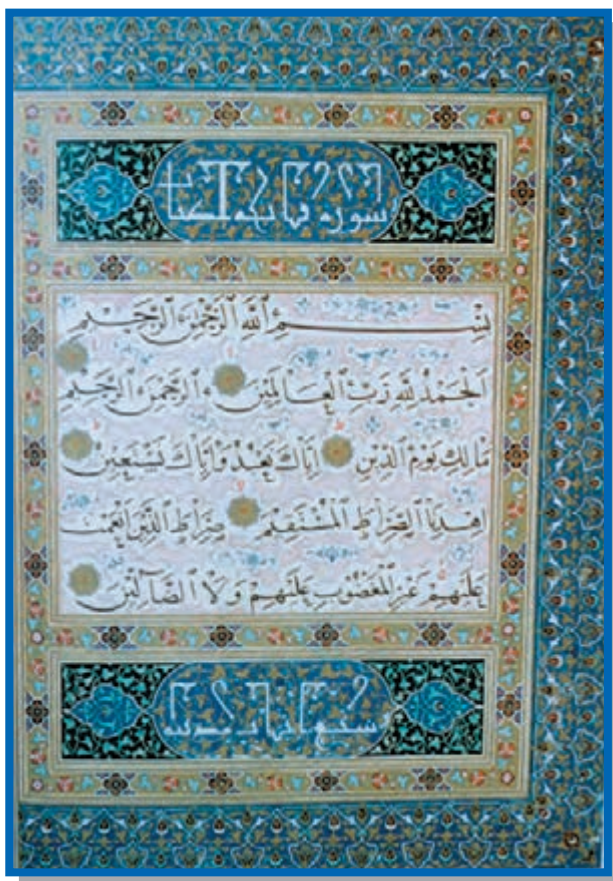 سورة فاتحة الكتاب
بِسْمِ ٱللَّهِ ٱلرَّحْمٰنِ ٱلرَّحِيمِ
اَلْحَمْدُ لِلَّهِ رَبِّ ٱلْعَالَمِينَ اَلرَّحْمٰنِ ٱلرَّحِيمِ
مَالِكِ يَوْمِ ٱلدِّينِ اِيَّاكَ نَعْبُدُ وَاِيَّاكَ نَسْتَعِينُ
اِهْدِنَا ٱلصِّرَاطَ ٱلْمُسْتَقِيمَ صِرَاطَ ٱلَّذِينَ اَنْعَمْتَ
عَلَيْهِمْ غَيْرِ ٱلْمَغْضُوبِ عَلَيْهِمْ وَلَا ٱلضَّآلِّينَ
سبع ايات